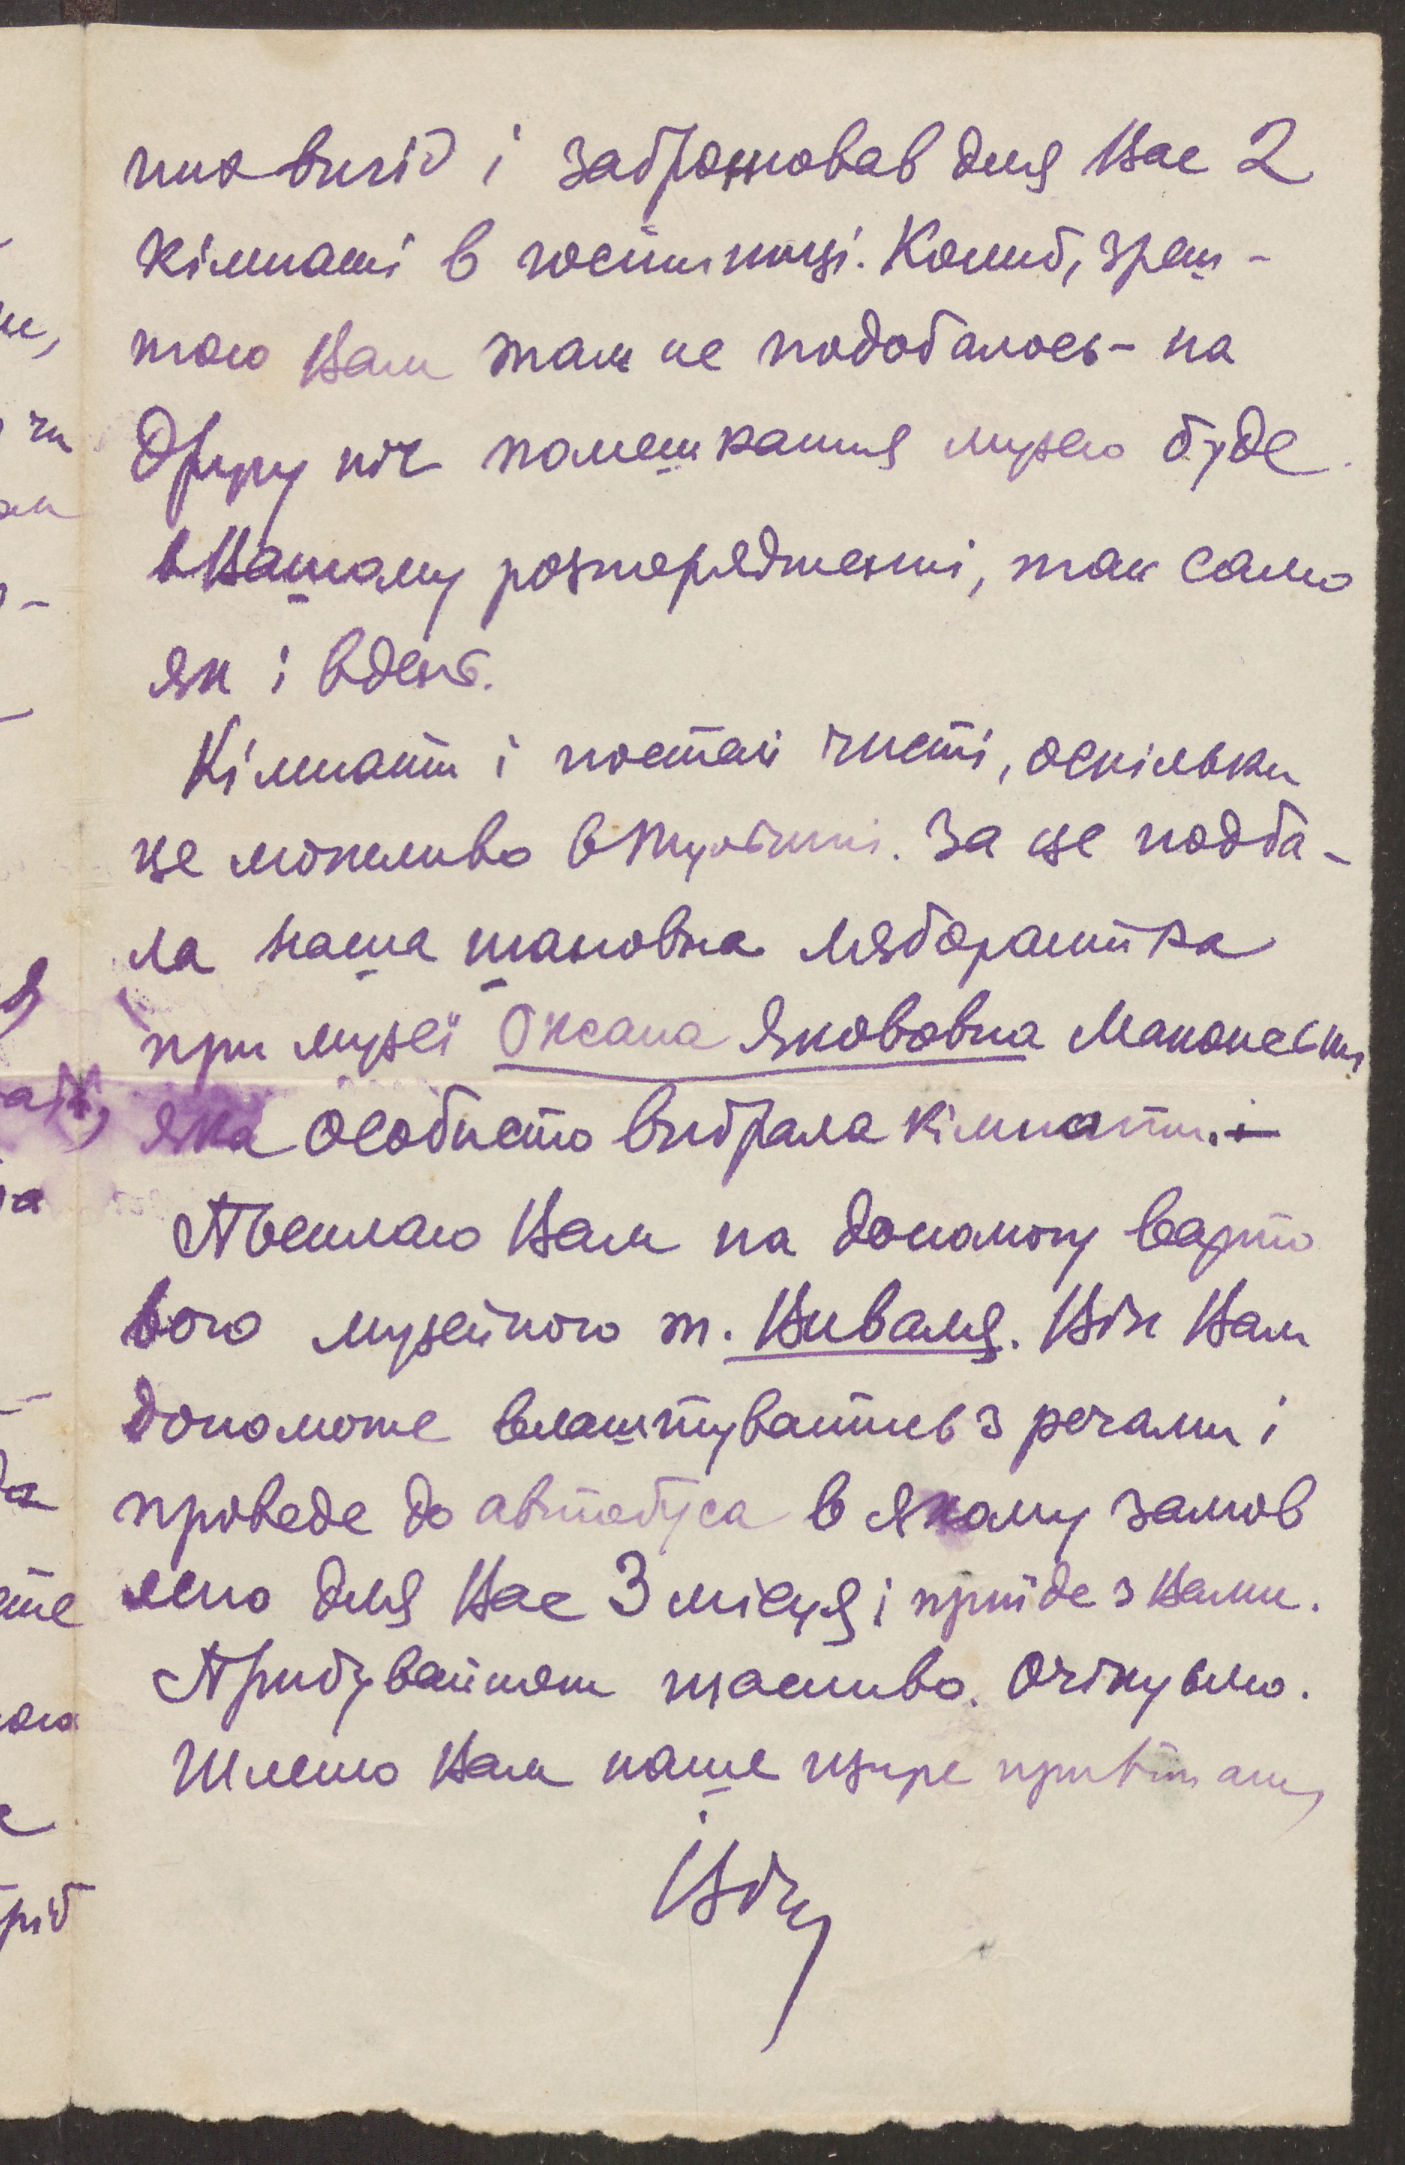 вихід і забронював для Вас 2
кімнаті в гостинниці. Колиб, зреш-
тою Вам там не подобалось - на
другу ніч помешкання музею буде
в Вашому розпорядженні, так само
як і вдень.
Кімнати і постелі чисті, оскільки
це можливо в Тульчині. За це подба-
ла наша шановна ляборантка
при музеї Оксана Якововна
яка особисто вибрала кімнати.
Посилаю Вам на допомогу варто
вого музейного т. Виваля. Він Вам
допоможе влаштуватись з речами і
проведе до автобуса в якому замов
лено для Вас 3 місця і приїде з Вами.
Прибувайте щасливо. Очікуємо.
Шлемо Вам наше щире привітання